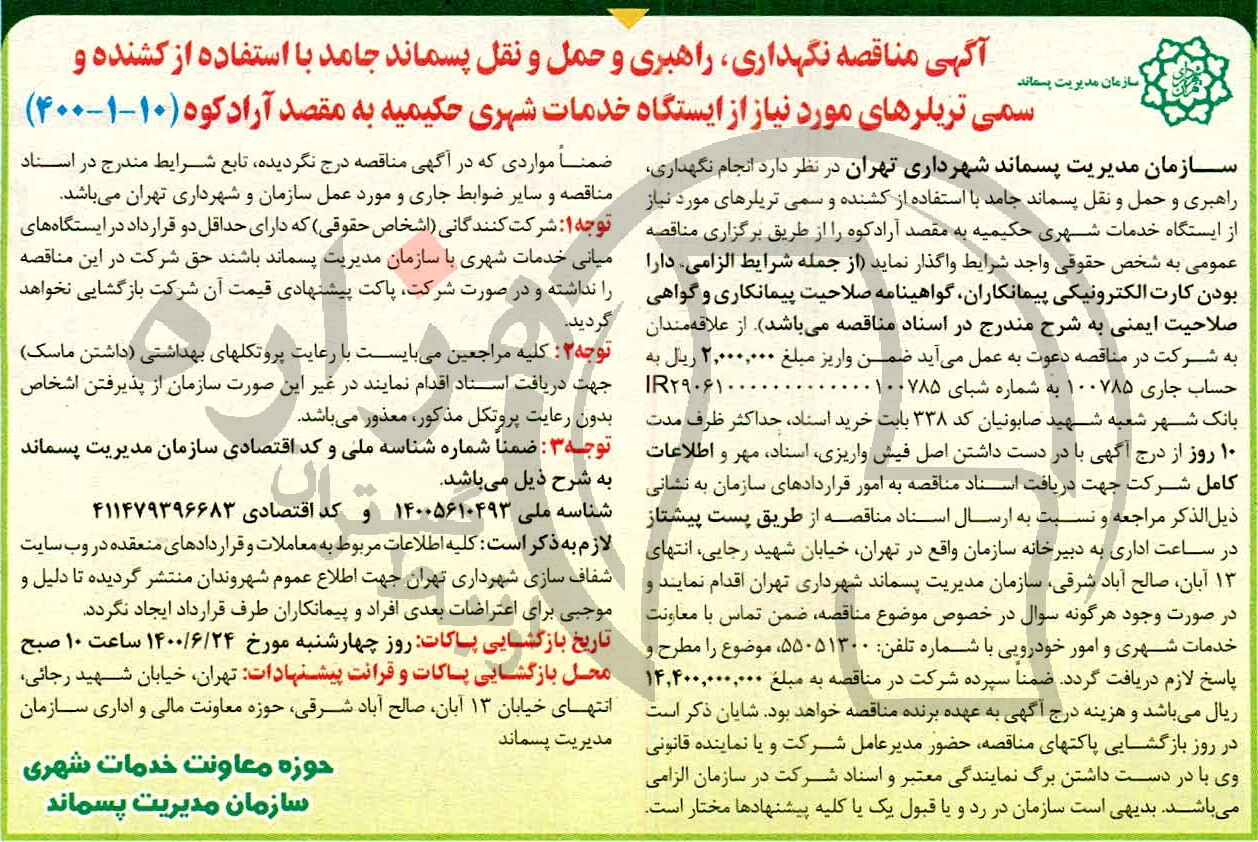 آگهی مناقصه نگهداری، راهبری و حمل و نقل پسماند جامد با استفاده از کشنده و
سمی تریلرهای مورد نیاز از ایستگاه خدمات شهری حکیمیه به مقصد آرادکوه (۱۰-۱-۴۰۰)
سازمان مدیریت پسماند
ســازمان مدیریت پسماند شهرداری تهران در نظر دارد انجام نگهداری،
راهبری و حمل و نقل پسماند جامد با استفاده از کشنده و سمی تریلرهای مورد نیاز
از ایستگاه خدمات شــهری حکیمیه به مقصد آرادکوه را از طریق برگزاری مناقصه
عمومی به شخص حقوقی واجد شرایط واگذار نماید (از جمله شرایط الزامی، دارا
بودن کارت الکترونیکی پیمانکاران، گواهینامه صلاحیت پیمانکاری و گواهی
صلاحیت ایمنی به شرح مندرج در اسناد مناقصه می‌باشد). از علاقه‌مندان
به شــرکت در مناقصه دعوت به عمل می‌آید ضمــن واریز مبلغ ۲,۰۰۰,۰۰۰ ریال به
حساب جاری ۱۰۰۷۸۵ به شماره شبای
بانک شــهر شعبه شــهید صابونیان کد ۳۳۸ بابت خرید اسناد، حداکثر ظرف مدت
۱۰ روز از درج آگهی با در دست داشتن اصل فیش واریزی، اسناد، مهر و اطلاعات
کامل شــرکت جهت دریافت اســناد مناقصه به امور قراردادهای سازمان به نشانی
ذیل‌الذکر مراجعه و نســبت به ارســال اســناد مناقصــه از طریق پست پیشتاز
در ســاعت اداری به دبیرخانه سازمان واقع در تهران، خیابان شهید رجایی، انتهای
۱۳ آبان، صالح آباد شرقی، سازمان مدیریت پسماند شهرداری تهران اقدام نمایند و
در صورت وجود هرگونه سوال در خصوص موضوع مناقصه، ضمن تماس با معاونت
خدمات شــهری و امور خودرویی با شــماره تلفن: ۵۵۰۵۱۳۰۰، موضوع را مطرح و
پاسخ لازم دریافت گردد. ضمناً سپرده شرکت در مناقصه به مبلغ ۱۴,۴۰۰,۰۰۰,۰۰۰
ریال می‌باشد و هزینه درج آگهی به عهده برنده مناقصه خواهد بود. شایان ذکر است
در روز بازگشــایی پاکتهای مناقصه، حضور مدیرعامل شــرکت و یا نماینده قانونی
وی با در دســت داشتن برگ نمایندگی معتبر و اسناد شــرکت در سازمان الزامی
می‌باشــد. بدیهی است سازمان در رد و یا قبول یک یا کلیه پیشنهادها مختار است.
ضمنــاً مواردی که در آگهی مناقصه درج نگردیده، تابع شــرایط مندرج در اســناد
مناقصه و سایر ضوابط جاری و مورد عمل سازمان و شهرداری تهران می‌باشد.
توجه۱: شرکت‌کنندگانی (اشخاص حقوقی) که دارای حداقل دو قرارداد در ایستگاه‌های
میانی خدمات شهری با سازمان مدیریت پسماند باشند حق شرکت در این مناقصه
را نداشته و در صورت شرکت، پاکت پیشنهادی قیمت آن شرکت بازگشایی نخواهد
گردید.
توجه۲: کلیه مراجعین می‌بایســت با رعایت پروتکلهای بهداشتی (داشتن ماسک)
جهت دریافت اســناد اقدام نمایند در غیر این صورت سازمان از پذیرفتن اشخاص
بدون رعایت پروتکل مذکور، معذور می‌باشد.
توجــه۳: ضمناً شماره شناسه ملی و کد اقتصادی سازمان مدیریت پسماند
به شرح ذیل می‌باشد.
شناسه ملی ۱۴۰۰۵۶۱۰۴۹۳ و کد اقتصادی ۴۱۱۴۷۹۳۹۶۶۸۳
لازم به ذکر است: کلیه اطلاعات مربوط به معاملات و قراردادهای منعقده در وب سایت
شفاف سازی شهرداری تهران جهت اطلاع عموم شهروندان منتشر گردیده تا دلیل و
موجبی برای اعتراضات بعدی افراد و پیمانکاران طرف قرارداد ایجاد نگردد.
تاریخ بازگشــایی پــاکات: روز چهارشنبه مورخ ۱۴۰۰/۶/۲۴ ساعت ۱۰ صبح
محــل بازگشــایی پــاکات و قرائت پیشــنهادات: تهران، خیابان شــهید رجائی،
انتهــای خیابان ۱۳ آبان، صالح آباد شــرقی، حوزه معاونت مالی و اداری ســازمان
مدیریت پسماند
حوزه معاونت خدمات شهری
سازمان مدیریت پسماند